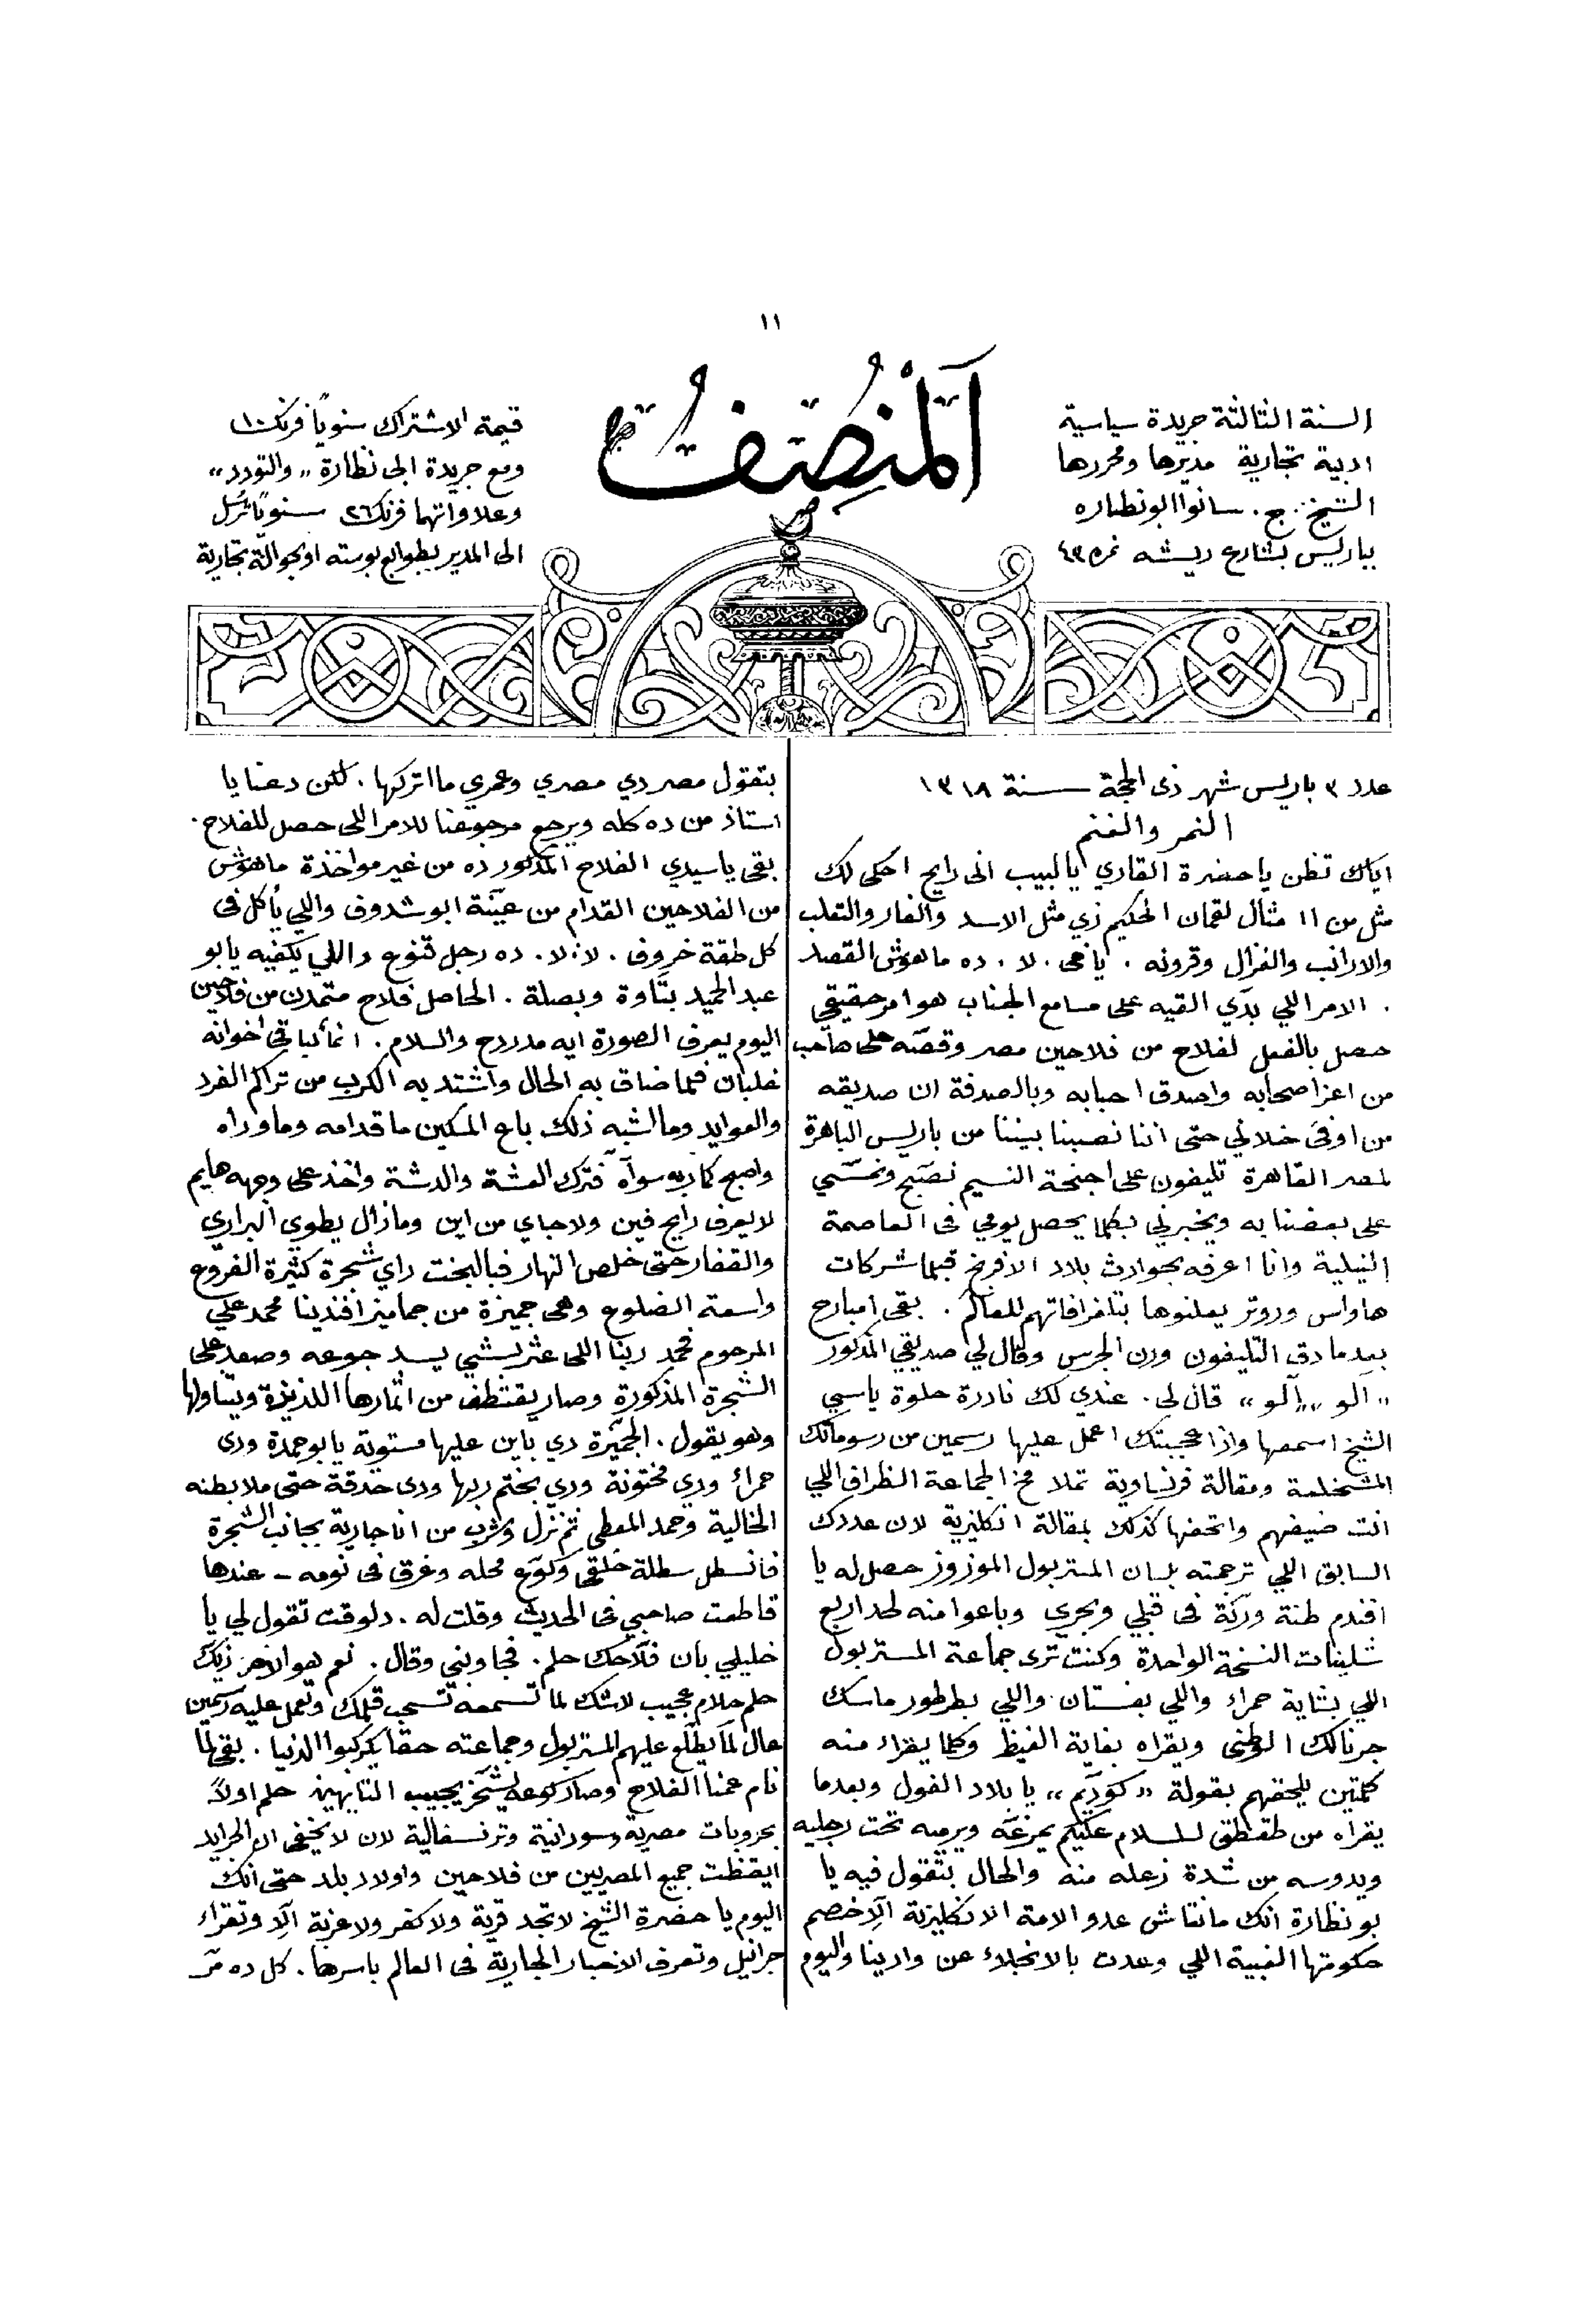 ١١
المنصف
السنة الثالثة جريدة سياسية
ادبية تجارية مديرها ومحررها
الشيخ ج. سانوا ابو نظاره
بباريس بشارع ريشه نمره ٤٣
قيمة الاشتراك سنوياً فرنك ١٠
ومع جريدة ابى نظارة „ والتودد „
وعلاواتهما فرنك ٢٦ سنوياً ترسل
الى المدير بطوابع بوسته او بحوالة تجارية
عدد ٣ باريس شهر ذى الحجة سنة ١٣١٨
النمر والغنم
اياك تظن يا حضرة القاري يا لبيب انى رايح احكى لك
مثل من امثال لقمان الحكيم زي مثل الاسد والفار والثعلب
والارانب والغزال وقرونه . يا خى . لا . ده ماهوش القصد
. الامر اللي بدّي القيه على مسامع الجناب هو امر حقيقي
حصل بالفعل لفلاح من فلاحين مصر وقصّه على صاحب
من اعز اصحابه واصدق احبابه وبالصدفة ان صديقه
من اوفى خلاني حتى اننا نصبنا بيننا من باريس الباهرة
لمصر القاهرة تليفون على اجنحة النسيم نصبّح ونمسّي
على بعضنا به ويخبرني بكلما يحصل يومي فى العاصمة
النيلية وانا اعرفه بحوادث بلاد الافرنج قبلما شركات
هاواس وروتر يعلنوها بتلغرافاتهم للعالم . بقى امبارح
بعدما دق التليفون ورن الجرس وقال لي صديقي المذكور
„ الو „ „ آلو „ قال لى . عندي لك نادرة حلوة يا سي
الشيخ اسمعها واذا عجبتك اعمل عليها رسمين من رسوماتك
المشخلعة ومقالة فرنساوية تملا مخ الجماعة الظراف اللي
انت ضيفهم واتحفها كذلك بمقالة انكليزية لان عددك
السابق اللي ترجمته بلسان المستربول الموزوز حصل له يا
افندم طنة ورنّة فى قبلي وبحري وباعوا منه لحد اربع
شلينات النسخة الواحدة وكنت ترى جماعة المستربول
اللي بشاية حمراء واللي بفستان واللي بطرطور ماسك
جرنالك الوطنى ويقراه بغاية الغيظ وكلما يقراء منه
كلمتين يلحقهم بقولة „ كودَيَم „ يا بلاد الفول وبعدما
يقراه من طقطق للسلام عليكم يمزعّه ويرميه تحت رجليه
ويدوسه من شدة زعله منه والحال بتقول فيه يا
بو نظارة انك مانتاش عدو الامة الانكليزية آلا خصم
حكومتها الغبية اللي وعدت بالانجلاء عن وادينا واليوم
بتقول مصر دي مصري وعمري ما اتركها . لكن دعنا يا
استاذ من ده كله ويرجع مرجوعنا للامر اللى حصل للفلاح .
بقى يا سيدي الفلاح المذكور ده من غير مواخذة ماهوش
من الفلاحين القدام من عيّنة ابو شدوف واللي يأكل فى
كل طقة خروف . لا . لا . ده رجل قنوع واللي يكفيه يا بو
عبد الحميد بتّاوة وبصلة . الحاصل فلاح متمدن من فلاحين
اليوم يعرف الصورة ايه مدردح والسلام . انما كباقى اخوانه
غلبان فلما ضاق به الحال واشتد به الكرب من تراكم الفرد
والعوايد وما اشبه ذلك باع المسكين ما قدامه وما وراه
واصبح كما ربه سوآه فترك العشة والدشة واخذ على وجهه هايم
لا يعرف رايح فين ولا جاي من اين وما زال يطوي البراري
والقفار حتى خلص النهار فبالبخت راي شجرة كثيرة الفروع
واسعة الضلوع وهى جميزة من جماميز افندينا محمد علي
المرحوم فحمد ربنا اللى عثر بشي يسد جوعه وصعد على
الشجرة المذكورة وصار يقتطف من اثمارها اللذيذة ويتناولها
وهو يقول . الجميّزة دي باين عليها مستوية يا بو حمدة ودى
حمراء ودي مختونة ودي بختم ربها ودى حدقة حتى ملا بطنه
الخالية وحمد المعطى ثم نزل وشرب من اناجارية بجانب الشجرة
فانسطل سطلة خلقى وكوّع محله وغرق فى نومه – عندها
قاطعت صاحبي فى الحديث وقلت له . دلوقت تقول لي يا
خليلي بان فلاحك حلم . فجاوبني وقال . نعم هو الاخر زيّك
حلم حلام عجيب لاشك لما تسمعه تسحب قلمك وتعمل عليه رسمين
عال لما يطّلع عليهم المستربول وجماعته حقا يكركبوا الدنيا . بقى لما
نام عمنا الفلاح وصار كوعه يشخر يجيب التايهين حلم اولاً
بحروبات مصرية وسودانية وترنسفالية لان لا يخفى ان الجرايد
ايقظت جميع المصريين من فلاحين واولاد بلد حتى انك
اليوم يا حضرة الشيخ لا تجد قرية ولا كفر ولا عزبة آلا وتقراء
جرانيل وتعرف الاخبار الجارية فى العالم باسرها . كل ده مّر